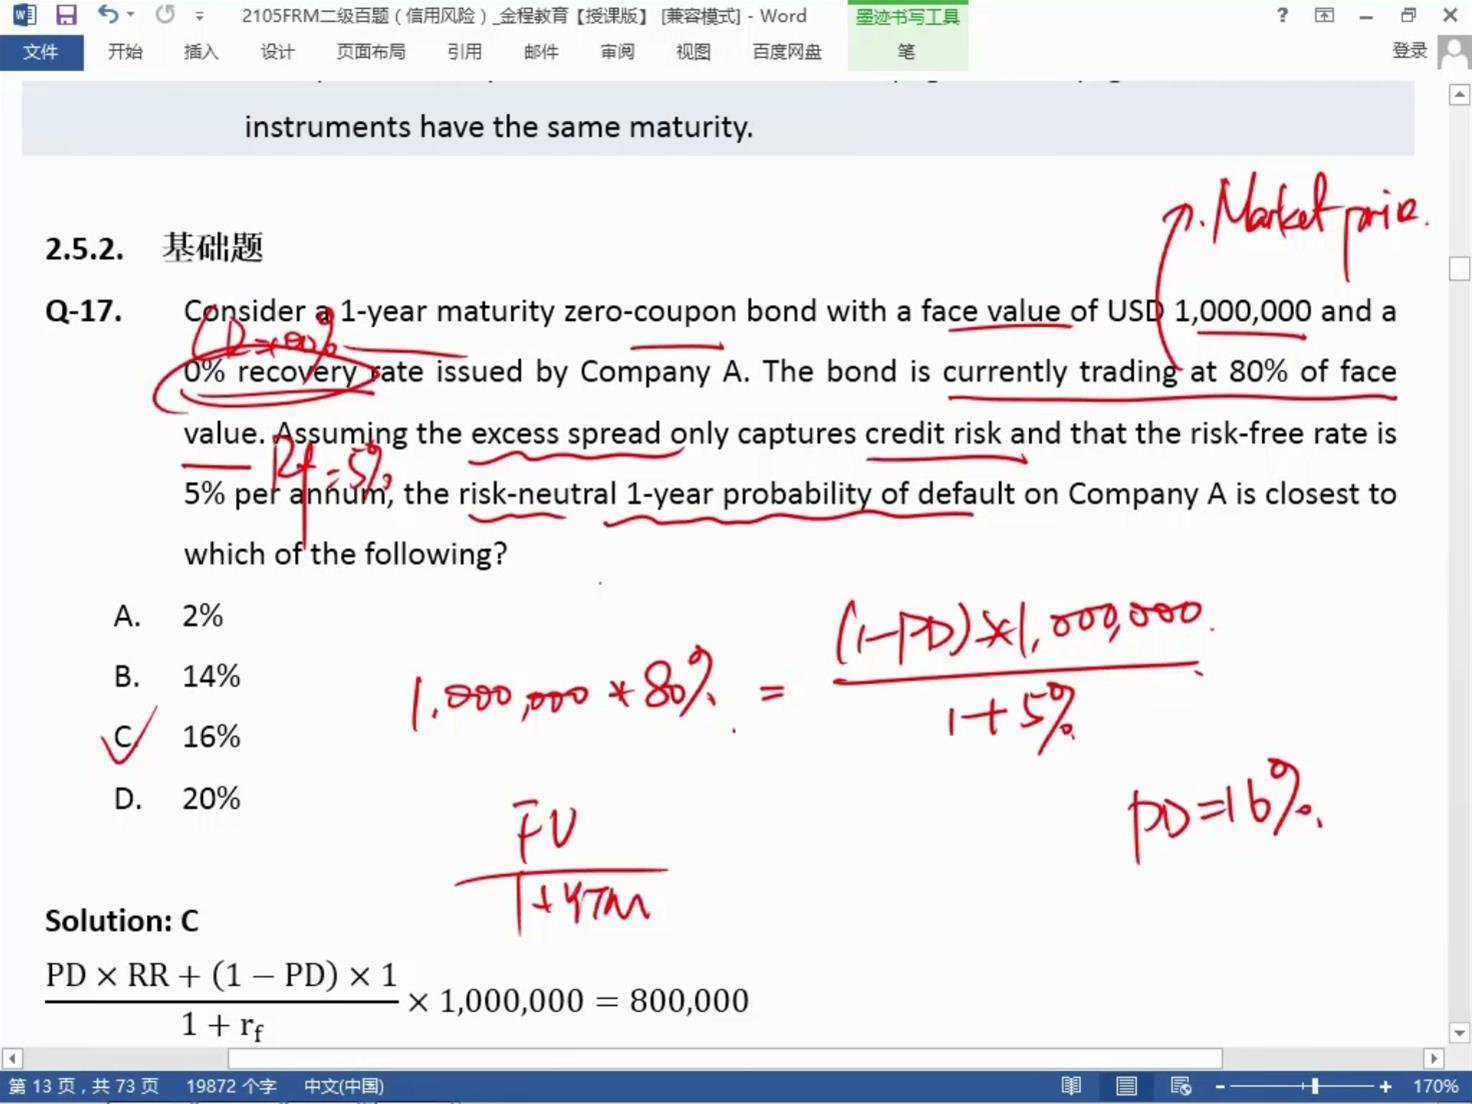 2105FRM二级百题（信用风险）_金程教育【授课版】 [兼容模式] - Word
墨迹书写工具
文件 开始 插入 设计 页面布局 引用 邮件 审阅 视图 百度网盘 笔 登录
instruments have the same maturity.
Market price.
2.5.2. 基础题
Q-17. Consider a 1-year maturity zero-coupon bond with a face value of USD 1,000,000 and a
0% recovery rate issued by Company A. The bond is currently trading at 80% of face
value. Assuming the excess spread only captures credit risk and that the risk-free rate is
Rf = 5%
5% per annum, the risk-neutral 1-year probability of default on Company A is closest to
which of the following?
A. 2%
B. 14%
C. 16%
D. 20%
1,000,000 * 80% = (1-PD)*1,000,000
1+5%
PD=16%
FV
1+YTM
Solution: C
PD × RR + (1 − PD) × 1
× 1,000,000 = 800,000
1 + rf
第 13 页，共 73 页 19872 个字 中文(中国) 170%